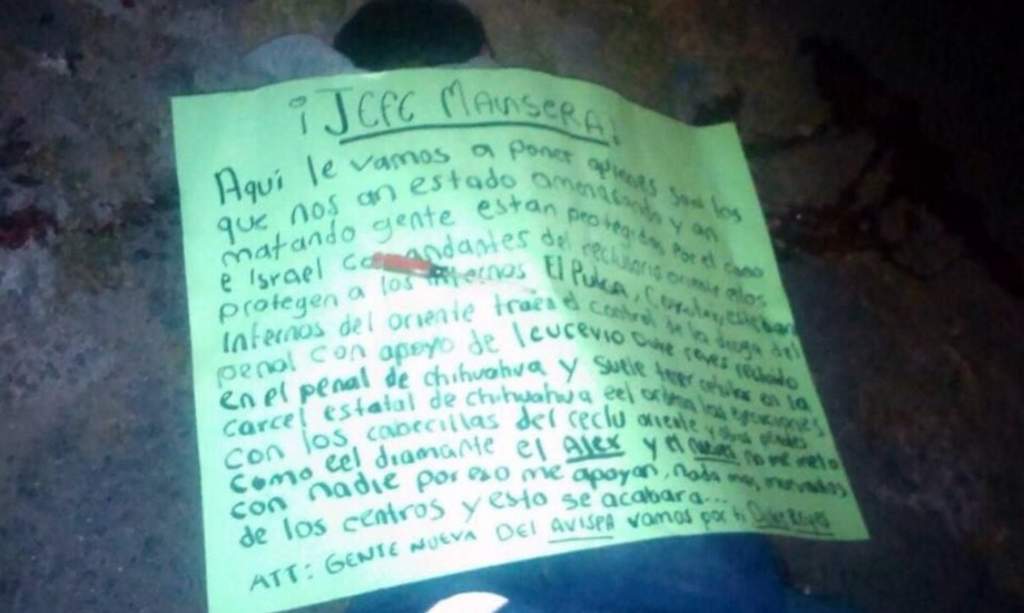 ¡JEFE MANSERA!
Aqui le vamos a poner quienes son los
que nos an estado amenasando y an
matando gente estan protegidos por el
e Israel comandantes del reclusorio oriente ellos
protegen a los internos El Pulga,
internos del oriente traen el control de la droga del
penal con apoyo de leucevio Duke reyes recluido
en el penal de chihuahua y suele tener celular en la
carcel estatal de chihuahua eel ordena las
con los cabecillas del reclu oriente y
como eel diamante el Alex y el no me meto
con nadie por eso me apoyan, nada mas,
de los centros y esto se acabara...
ATT: GENTE NUEVA DEL AVISPA vamos por ti Duke Reyes